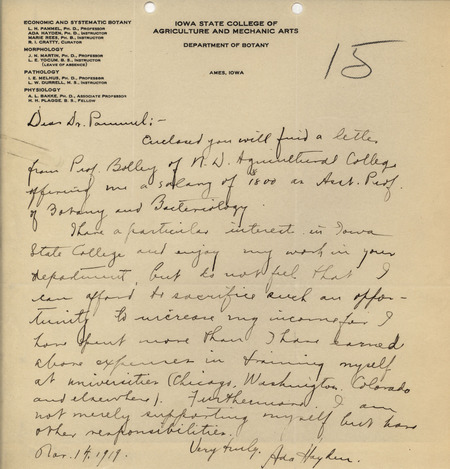 ECONOMIC AND SYSTEMATIC BOTANY
L. H. PAMMEL, PH. D., PROFESSOR
ADA HAYDEN, PH. D., INSTRUCTOR
MARIE REES, PH. B., INSTRUCTOR
R. I. CRATTY, CURATOR
MORPHOLOGY
J. N. MARTIN, PH. D., PROFESSOR
L. E. YOCUM, B. S., INSTRUCTOR
(LEAVE OF ABSENCE)
PATHOLOGY
I. E. MELHUS, PH. D., PROFESSOR
L. W. DURRELL, M. S., INSTRUCTOR
PHYSIOLOGY
A. L. BAKKE, PH. D., ASSOCIATE PROFESSOR
H. H. PLAGGE, B. S., FELLOW
IOWA STATE COLLEGE OF
AGRICULTURE AND MECHANIC ARTS
DEPARTMENT OF BOTANY
AMES, IOWA
15
Dear Dr. Pammel:-
Enclosed you will find a letter
from Prof. Bolley of N. D. Agricultural College
offering me a salary of 1800 as Asst. Prof.
of Botany and Bacteriology.
I have a particular interest in Iowa
State College and enjoy my work in your
department, but do not feel that I
can afford to sacrifice such an oppor-
tunity to increase my income for I
have spent more than I have earned
above expenses in training myself
at universities (Chicago, Washington, Colorado
and elsewhere). Furthermore I am
not merely supporting myself but have
other responsibilities.
Very truly,
Ada Hayden.
14, 1919.